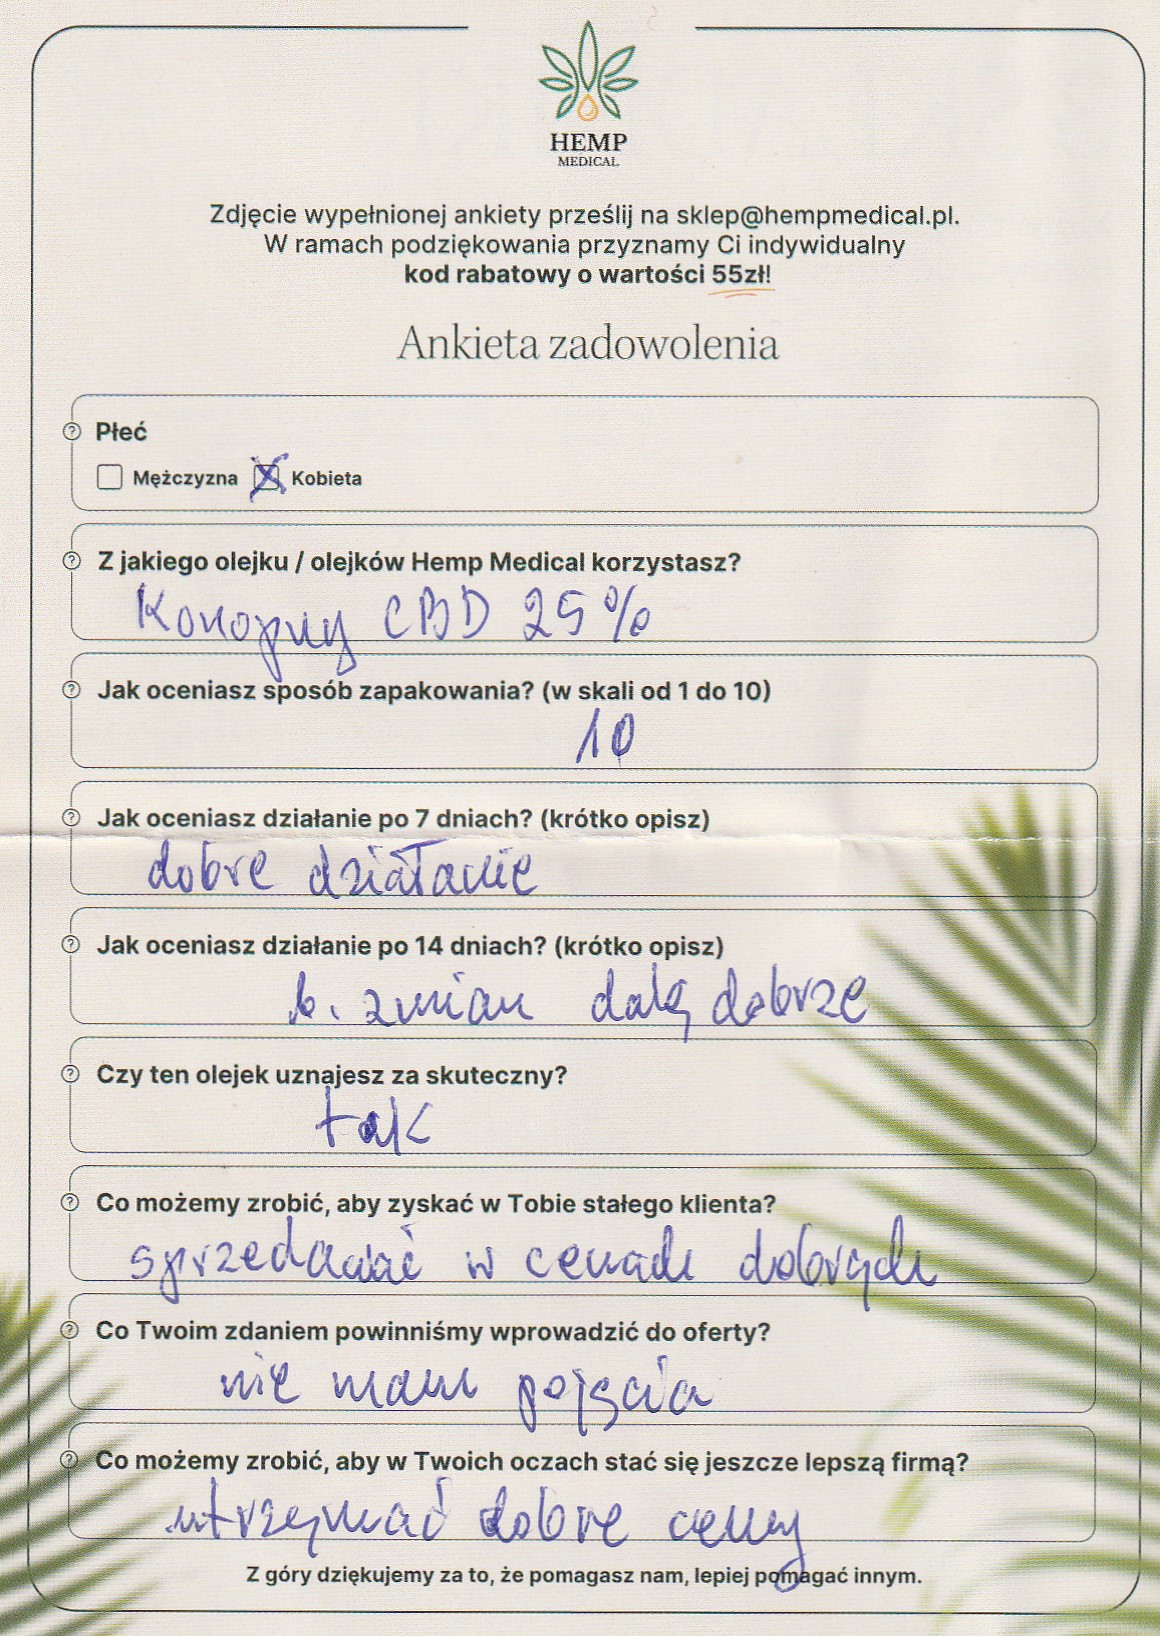 HEMP
MEDICAL
Zdjęcie wypełnionej ankiety prześlij na sklep@hempmedical.pl.
W ramach podziękowania przyznamy Ci indywidualny
kod rabatowy o wartości 55zł!
Ankieta zadowolenia
Płeć
Mężczyzna Kobieta
Z jakiego olejku / olejków Hemp Medical korzystasz?
Konopny CBD 25%
Jak oceniasz sposób zapakowania? (w skali od 1 do 10)
10
Jak oceniasz działanie po 7 dniach? (krótko opisz)
dobre działanie
Jak oceniasz działanie po 14 dniach? (krótko opisz)
b. zmian dalej dobrze
Czy ten olejek uznajesz za skuteczny?
tak
Co możemy zrobić, aby zyskać w Tobie stałego klienta?
sprzedawać w cenach dobrych
Co Twoim zdaniem powinniśmy wprowadzić do oferty?
nie mam pojęcia
Co możemy zrobić, aby w Twoich oczach stać się jeszcze lepszą firmą?
utrzymać dobre ceny
Z góry dziękujemy za to, że pomagasz nam, lepiej pomagać innym.